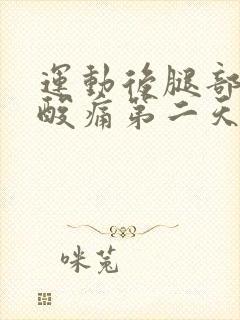 運動後腿部
酸痛第二天
咪兔